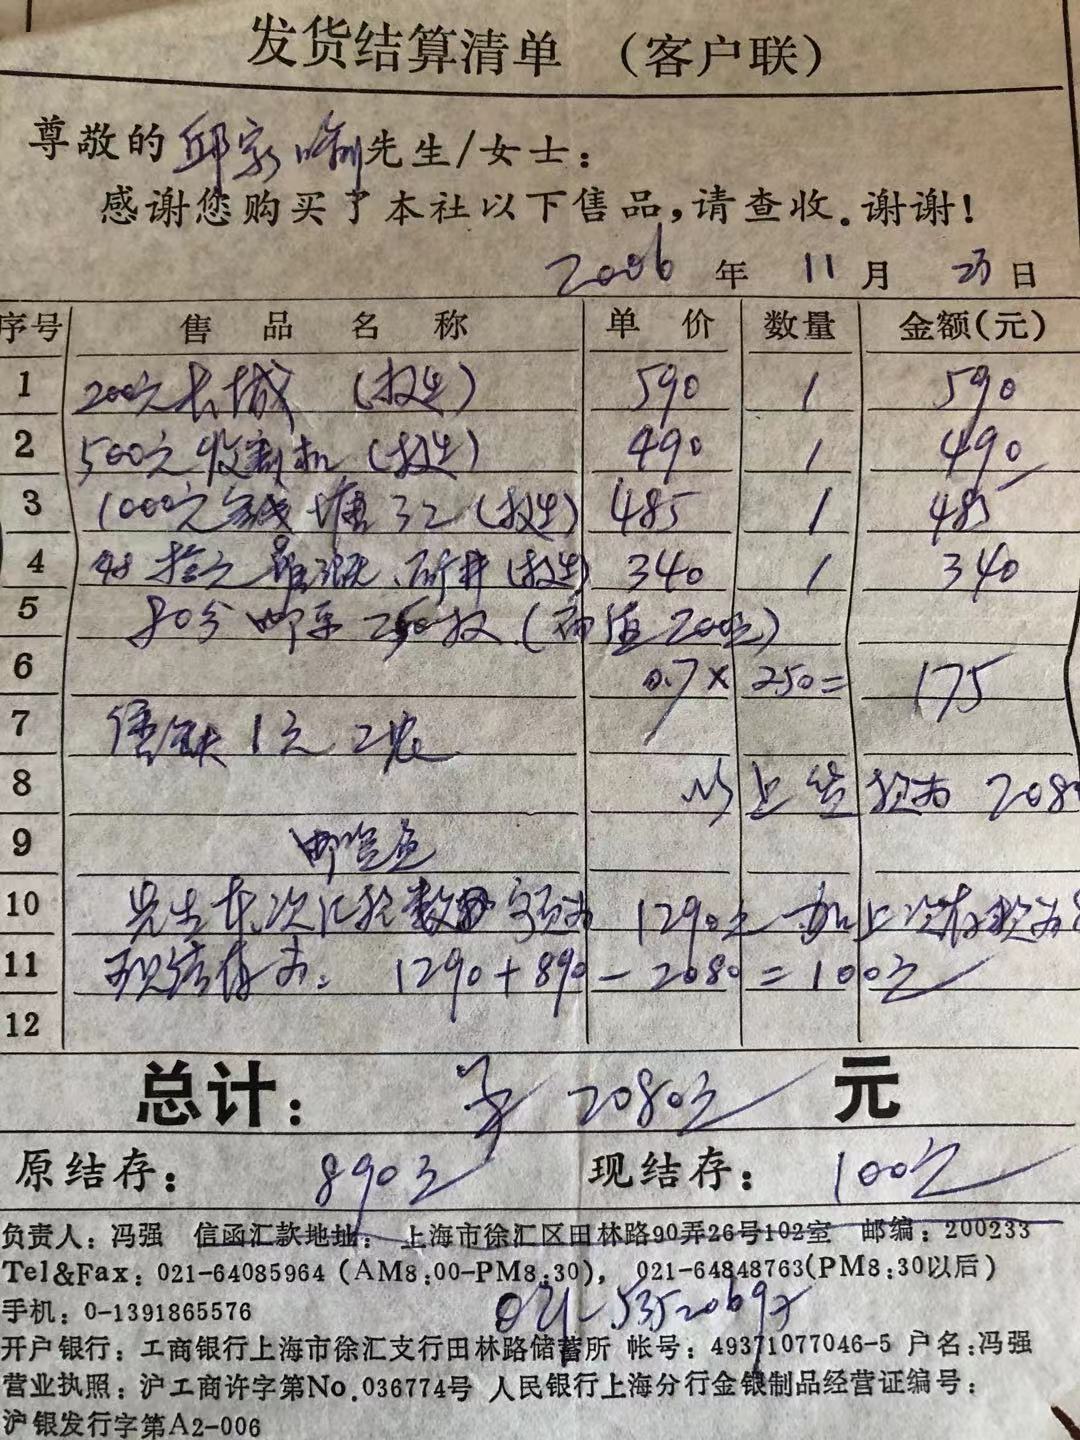 发货结算清单 （客户联）
尊敬的 邱家 先生/女士：
感谢您购买了本社以下售品，请查收．谢谢！
2006 年 11 月 23 日
序号 售品名称 单价 数量 金额（元）
1 200元长城 （投生） 590 1 590
2 500元收割机（投生） 490 1 490
3 1000元钱塘江（投生） 485 1 485
4 48 拾元 （投生） 340 1 340
5 80分邮票250枚．（面值200元）
6 0.7×250= 175
7 1元2农
8 以上货款为 208
9
10 先生本次汇款数 为 1290元 加上次存款为8
11 现结存为： 1290+890-2080=100元
12
总计： 2080元 元
原结存： 890元 现结存： 100元
负责人：冯强 信函汇款地址： 上海市徐汇区田林路90弄26号102室 邮编：200233
Tel&Fax：021-64085964（AM8:00-PM8:30）， 021-64848763(PM8:30以后)
手机：0-1391865576
开户银行：工商银行上海市徐汇支行田林路储蓄所 帐号：49371077046-5 户名：冯强
营业执照：沪工商许字第No.036774号 人民银行上海分行金银制品经营证编号：
沪银发行字第A2-006